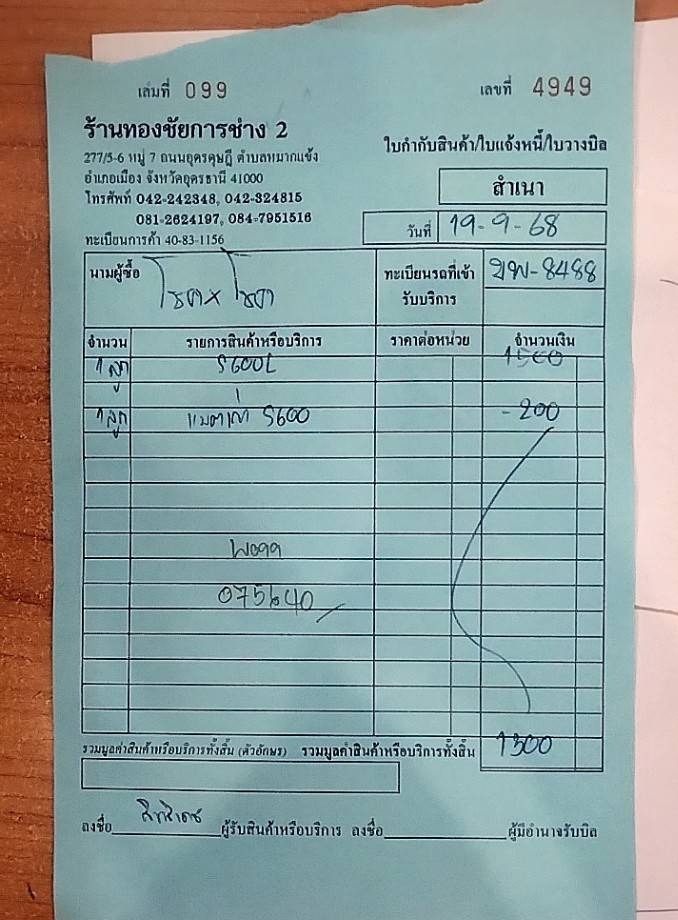 เล่มที่ 099
เลขที่ 4949
ร้านทองชัยการช่าง 2
277/5-6 หมู่ 7 ถนนอุดรดุษฎี ตำบลหมากแข้ง
อำเภอเมือง จังหวัดอุดรธานี 41000
โทรศัพท์ 042-242348, 042-324815
081-2624197, 084-7951516
ทะเบียนการค้า 40-83-1156
ใบกำกับสินค้า/ใบแจ้งหนี้/ใบวางบิล
สำเนา
วันที่ 19-9-68
นามผู้ซื้อ
ทะเบียนรถที่เข้ารับบริการ
-8488
จำนวน รายการสินค้าหรือบริการ ราคาต่อหน่วย จำนวนเงิน
1 ลูก S600L 1500
1 ลูก S600 -200
075640
รวมมูลค่าสินค้าหรือบริการทั้งสิ้น (ตัวอักษร) รวมมูลค่าสินค้าหรือบริการทั้งสิ้น 1300
ลงชื่อ ผู้รับสินค้าหรือบริการ ลงชื่อ ผู้มีอำนาจรับบิล